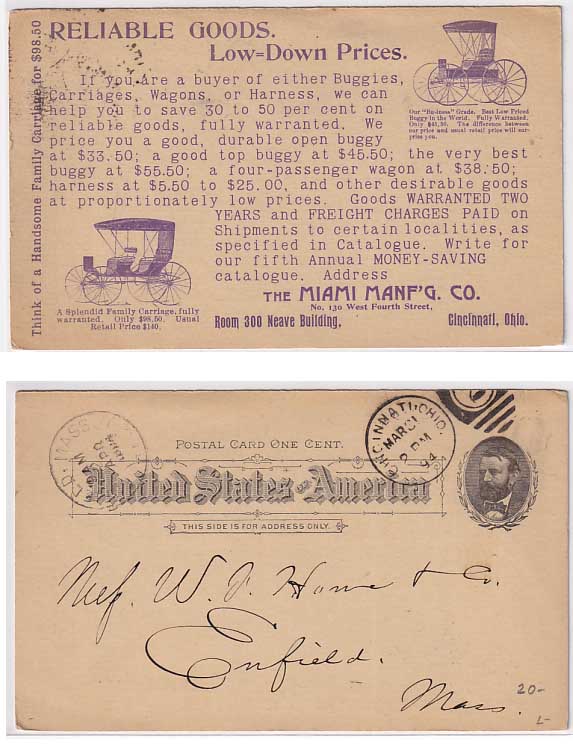 RELIABLE GOODS.
Low=Down Prices.
If you are a buyer of either Buggies,
Carriages, Wagons, or Harness, we can
help you to save 30 to 50 per cent on
reliable goods, fully warranted. We
price you a good, durable open buggy
at $33.50; a good top buggy at $45.50; the very best
buggy at $55.50; a four-passenger wagon at $38.50;
harness at $5.50 to $25.00, and other desirable goods
at proportionately low prices. Goods WARRANTED TWO
YEARS and FREIGHT CHARGES PAID on
Shipments to certain localities, as
specified in Catalogue. Write for
our fifth Annual MONEY-SAVING
catalogue. Address
THE MIAMI MANF'G. CO.
No. 130 West Fourth Street,
Room 300 Neave Building, Cincinnati, Ohio.
Our "Business" Grade. Best Low Priced
Buggy in the World. Fully Warranted.
Only $45.50. The difference between
our price and usual retail price will sur-
prise you.
A Splendid Family Carriage, fully
warranted. Only $98.50. Usual
Retail Price $140.
Think of a Handsome Family Carriage for $98.50
POSTAL CARD ONE CENT.
United States of America
THIS SIDE IS FOR ADDRESS ONLY.
CINCINNATI, OHIO.
MAR 31
2 PM
94
MASS.
APR
AM
W. Howe & Co.
Enfield.
Mass.
20-
L-